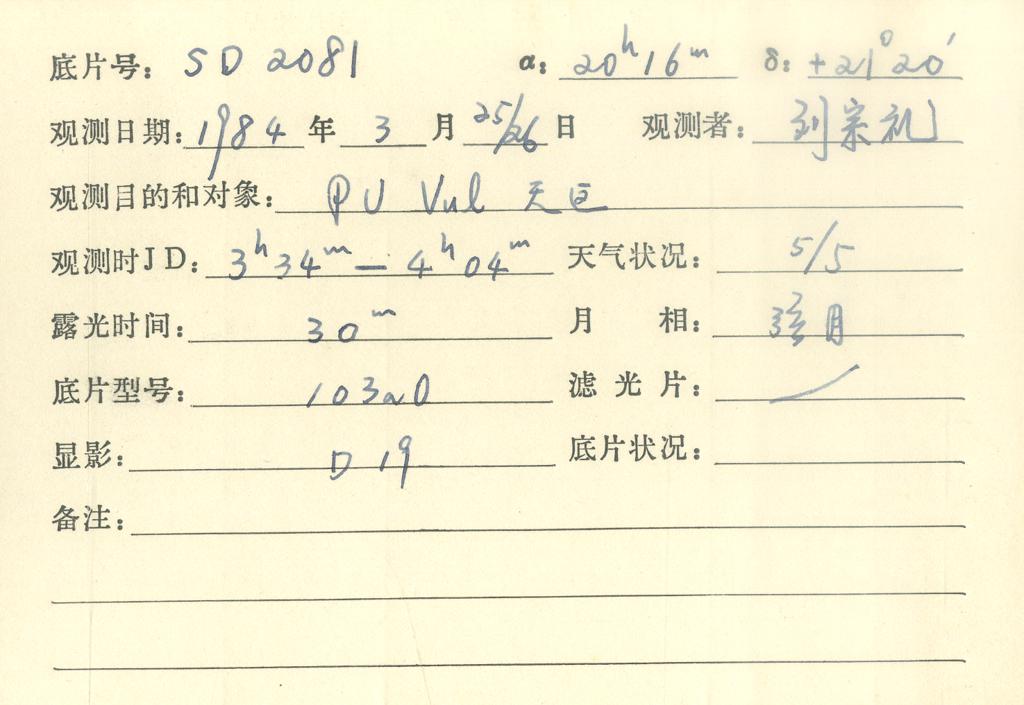 底片号: SD 2081 α: 20ʰ16ᵐ δ: +21°20′
观测日期: 1984 年 3 月 25/26 日 观测者: 刘宗礼
观测目的和对象: PU Vul 天区
观测时JD: 3ʰ34ᵐ — 4ʰ04ᵐ 天气状况: 5/5
露光时间: 30ᵐ 月 相: 弦月
底片型号: 103aO 滤光片: /
显影: D19 底片状况:
备注: